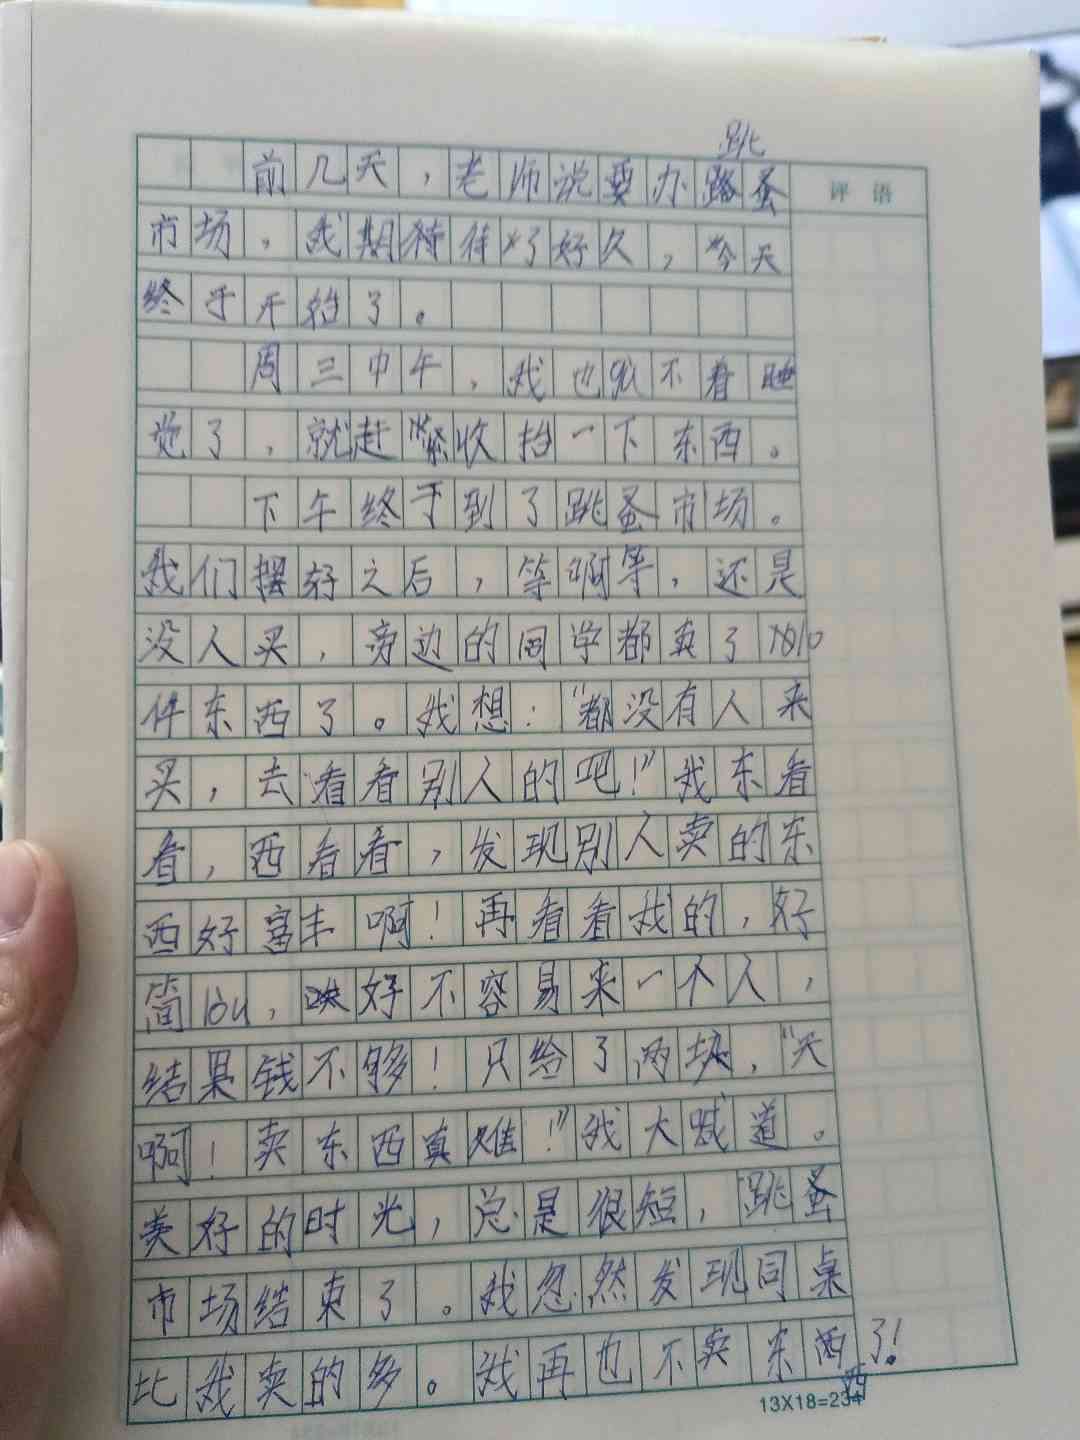 跳
前几天，老师说要办路蚤
评语
市场，我期待待了好久，今天
终于开始了。
周三中午，我也没不着睡
觉了，就赶紧收拾一下东西。
下午终于到了跳蚤市场。
我们摆好之后，等啊等，还是
没人买，旁边的同学都卖了10
件东西了。我想："都没有人来
买，去看看别人的吧！"我东看
看，西看看，发现别人卖的东
西好富丰啊！再看看我的，好
简lòu，好不容易来一个人，
结果钱不够！只给了两块，"天
啊！卖东西真难！"我大喊道。
美好的时光，总是很短，跳蚤
市场结束了。我忽然发现同桌
比我卖的多。我再也不卖东西了！
西
13X18=234